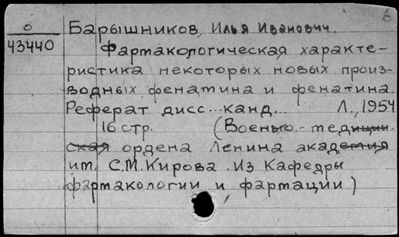 0 Барышников, Илья Иванович.
43440 Фармакологическая характе-
ристика некоторых новых произ-
водных фенатина и фенатина.
Реферат дисс... канд... Л., 1954
16 стр. (Военно-медицин
ская ордена Ленина академия
им. С.М.Кирова. Из Кафедры
фармакологии и фармации)